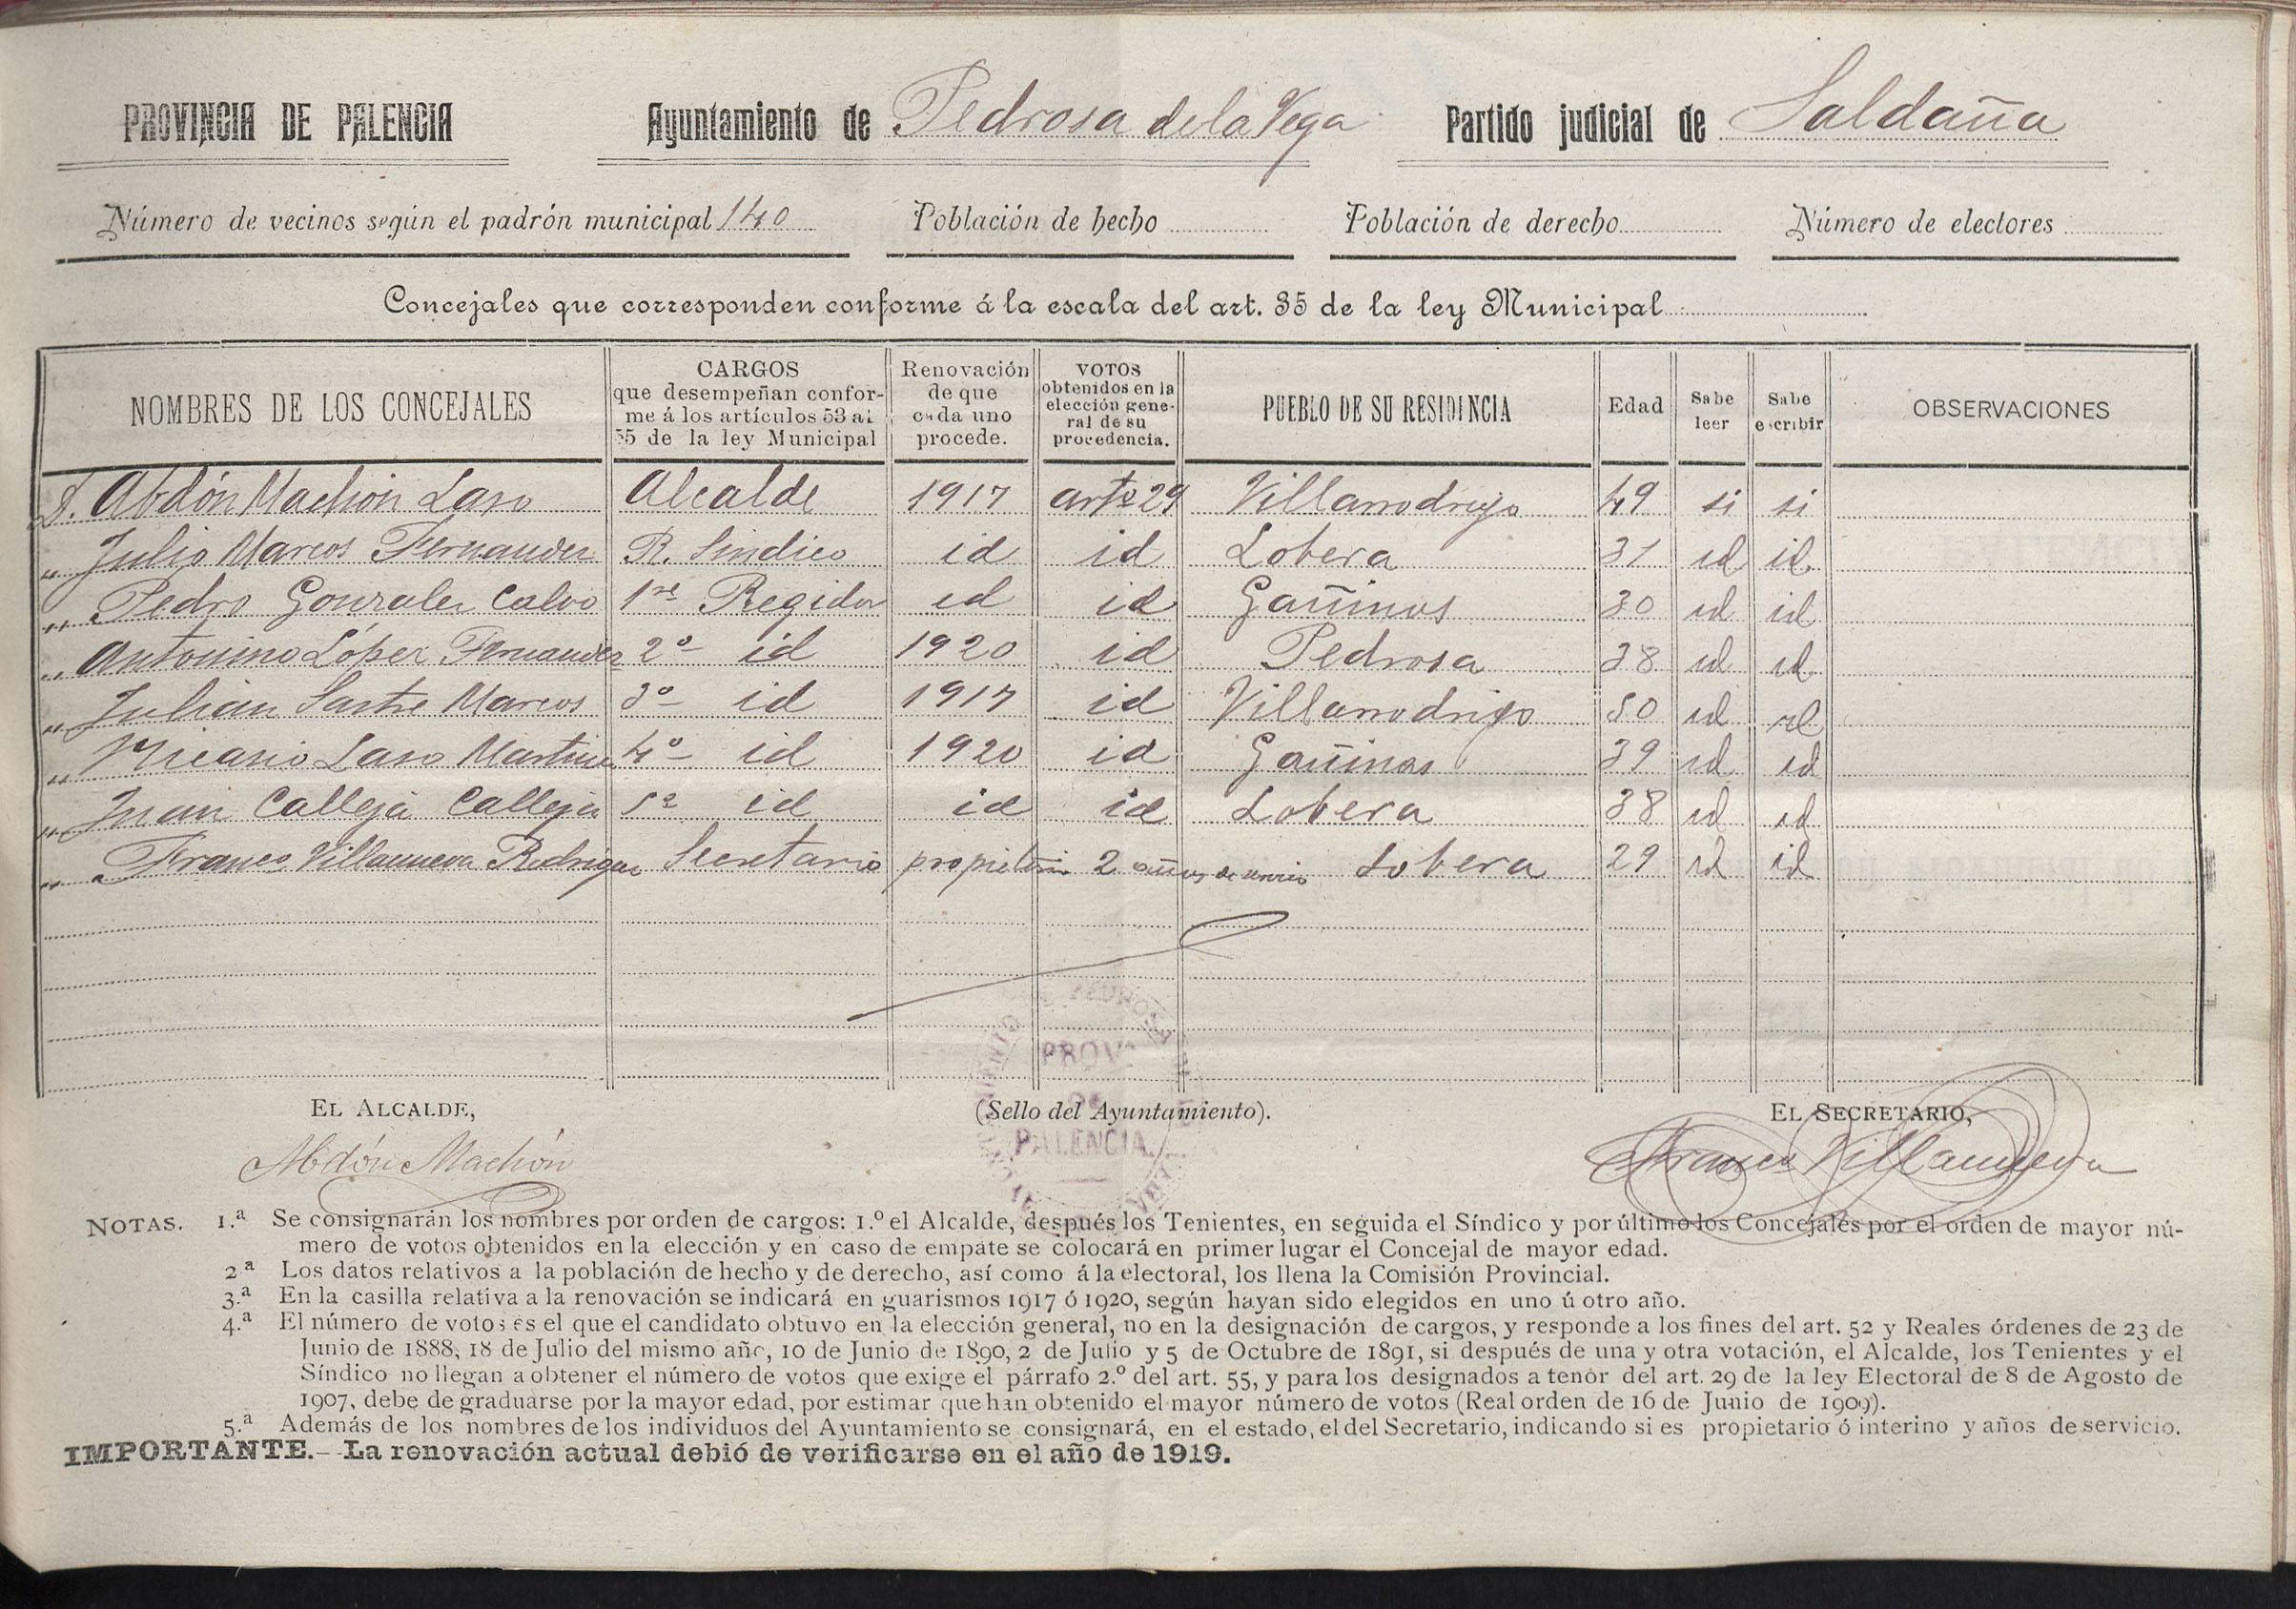 PROVINCIA DE PALENCIA Ayuntamiento de Pedrosa de la Vega Partido judicial de Saldaña
Número de vecinos según el padrón municipal 140 Población de hecho Población de derecho Número de electores
Concejales que corresponden conforme á la escala del art. 35 de la ley Municipal
NOMBRES DE LOS CONCEJALES CARGOS que desempeñan conforme á los artículos 53 al 55 de la ley Municipal Renovación de que cada uno procede. VOTOS obtenidos en la elección general de su procedencia. PUEBLO DE SU RESIDENCIA Edad Sabe leer Sabe escribir OBSERVACIONES
D. Abdón Machón Laso Alcalde 1917 artº 29 Villarrodrigo 49 si si
" Julio Marcos Fernandez R. Sindico id id Lobera 31 id id
" Pedro Gonzalez Calvo 1er Regidor id id Gañinas 30 id id
" Antonino López Fernandez 2º id 1920 id Pedrosa 38 id id
" Julian Sastre Marcos 3º id 1917 id Villarrodrigo 50 id id
" Nicasio Laso Martinez 4º id 1920 id Gañinas 39 id id
" Juan Calleja Calleja 5º id id id Lobera 38 id id
" Franco Villanueva Rodriguez Secretario propietario 2 años de servicio Lobera 29 id id
EL ALCALDE, (Sello del Ayuntamiento). EL SECRETARIO,
PROV
PALENCIA
Abdón Machón Franco Villanueva
NOTAS. 1.ª Se consignarán los nombres por orden de cargos: 1.º el Alcalde, después los Tenientes, en seguida el Síndico y por último los Concejales por el orden de mayor nú-
mero de votos obtenidos en la elección y en caso de empate se colocará en primer lugar el Concejal de mayor edad.
2ª Los datos relativos a la población de hecho y de derecho, así como á la electoral, los llena la Comisión Provincial.
3.ª En la casilla relativa a la renovación se indicará en guarismos 1917 ó 1920, según hayan sido elegidos en uno ú otro año.
4.ª El número de votos es el que el candidato obtuvo en la elección general, no en la designación de cargos, y responde a los fines del art. 52 y Reales órdenes de 23 de
Junio de 1888, 18 de Julio del mismo año, 10 de Junio de 1890, 2 de Julio y 5 de Octubre de 1891, si después de una y otra votación, el Alcalde, los Tenientes y el
Síndico no llegan a obtener el número de votos que exige el párrafo 2.º del art. 55, y para los designados a tenor del art. 29 de la ley Electoral de 8 de Agosto de
1907, debe de graduarse por la mayor edad, por estimar que han obtenido el mayor número de votos (Real orden de 16 de Junio de 1909).
5.ª Además de los nombres de los individuos del Ayuntamiento se consignará, en el estado, el del Secretario, indicando si es propietario ó interino y años de servicio.
IMPORTANTE.—La renovación actual debió de verificarse en el año de 1919.